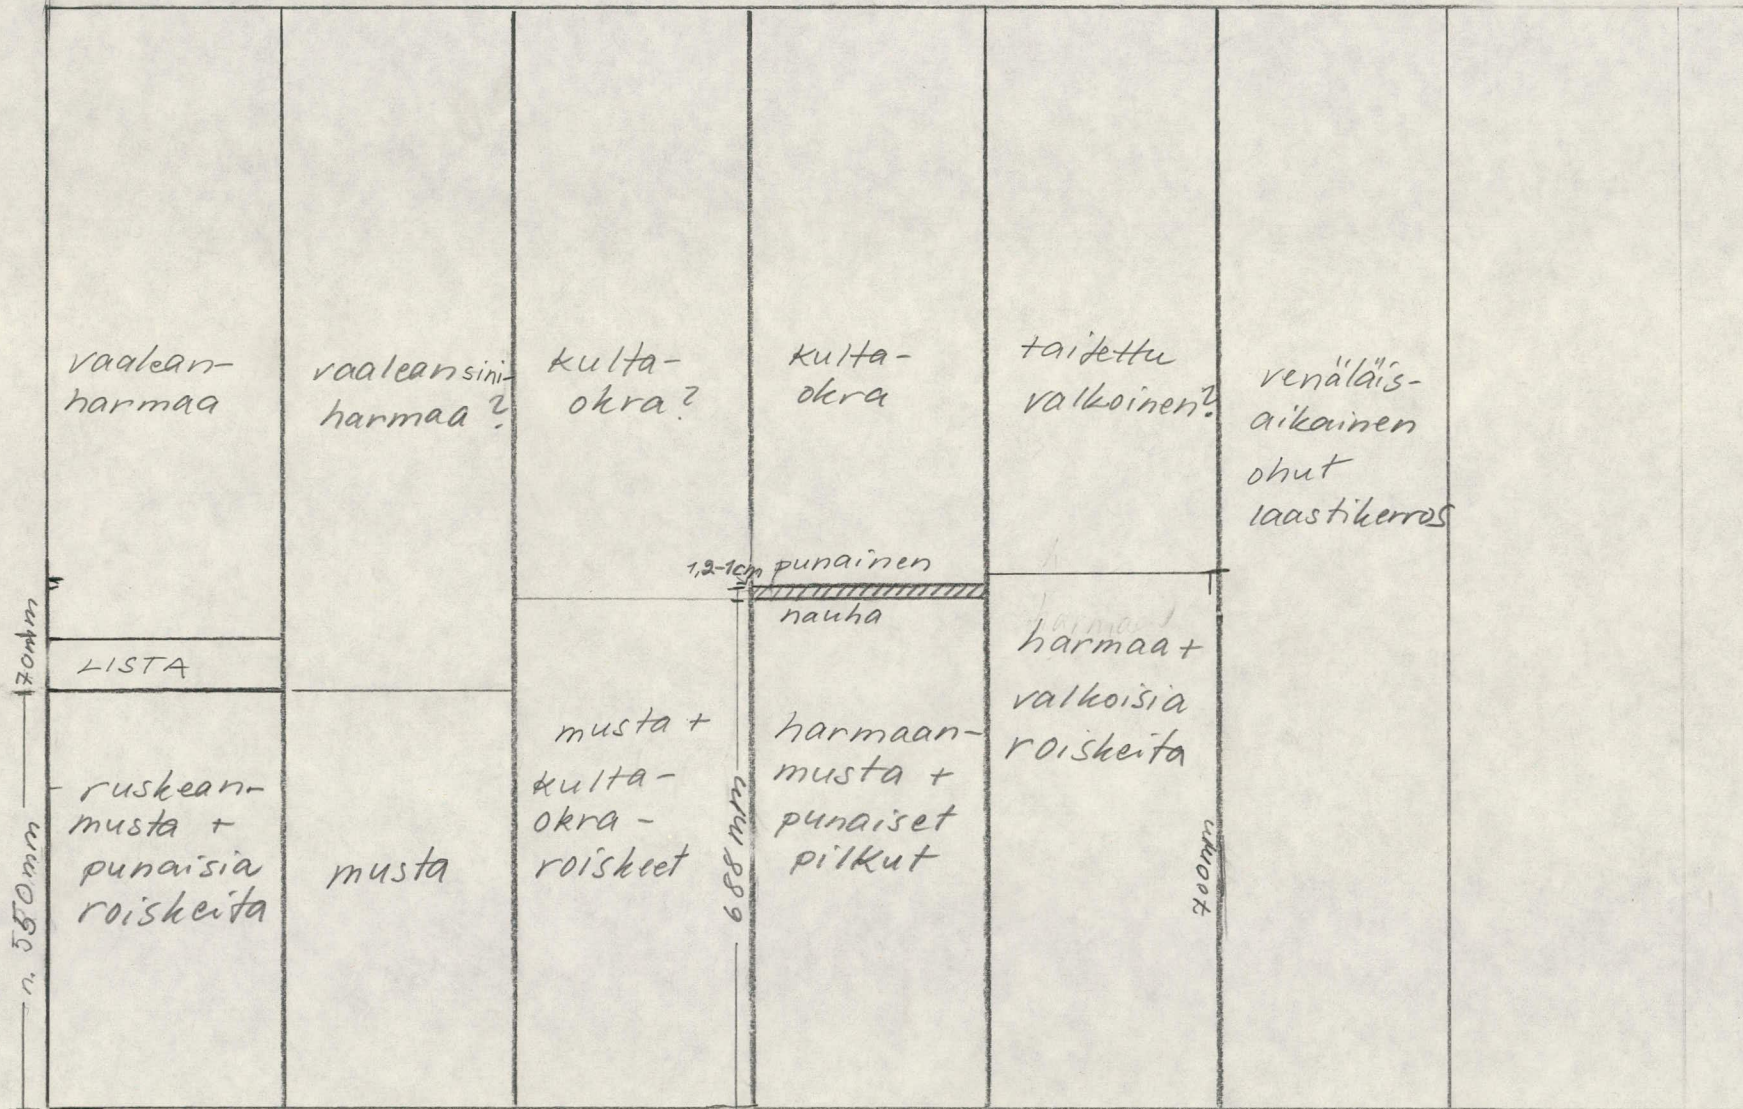 vaalean-
harmaa
LISTA
ruskean-
musta +
punaisia
roiskeita
n. 550mm
170mm
vaaleansini-
harmaa?
musta
kulta-
okra?
musta +
kulta-
okra-
roiskeet
688 mm
1,2-1cm
kulta-
okra
punainen
nauha
harmaan-
musta +
punaiset
pilkut
taitettu
valkoinen?
harmaa +
valkoisia
roiskeita
700mm
venäläis-
aikainen
ohut
laastikerros